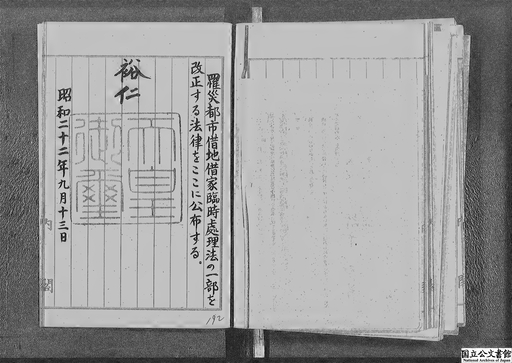 罹災都市借地借家臨時處理法の一部を
改正する法律をここに公布する。
裕仁
天皇
御璽
昭和二十二年九月十三日
内閣
192
国立公文書館
National Archives of Japan